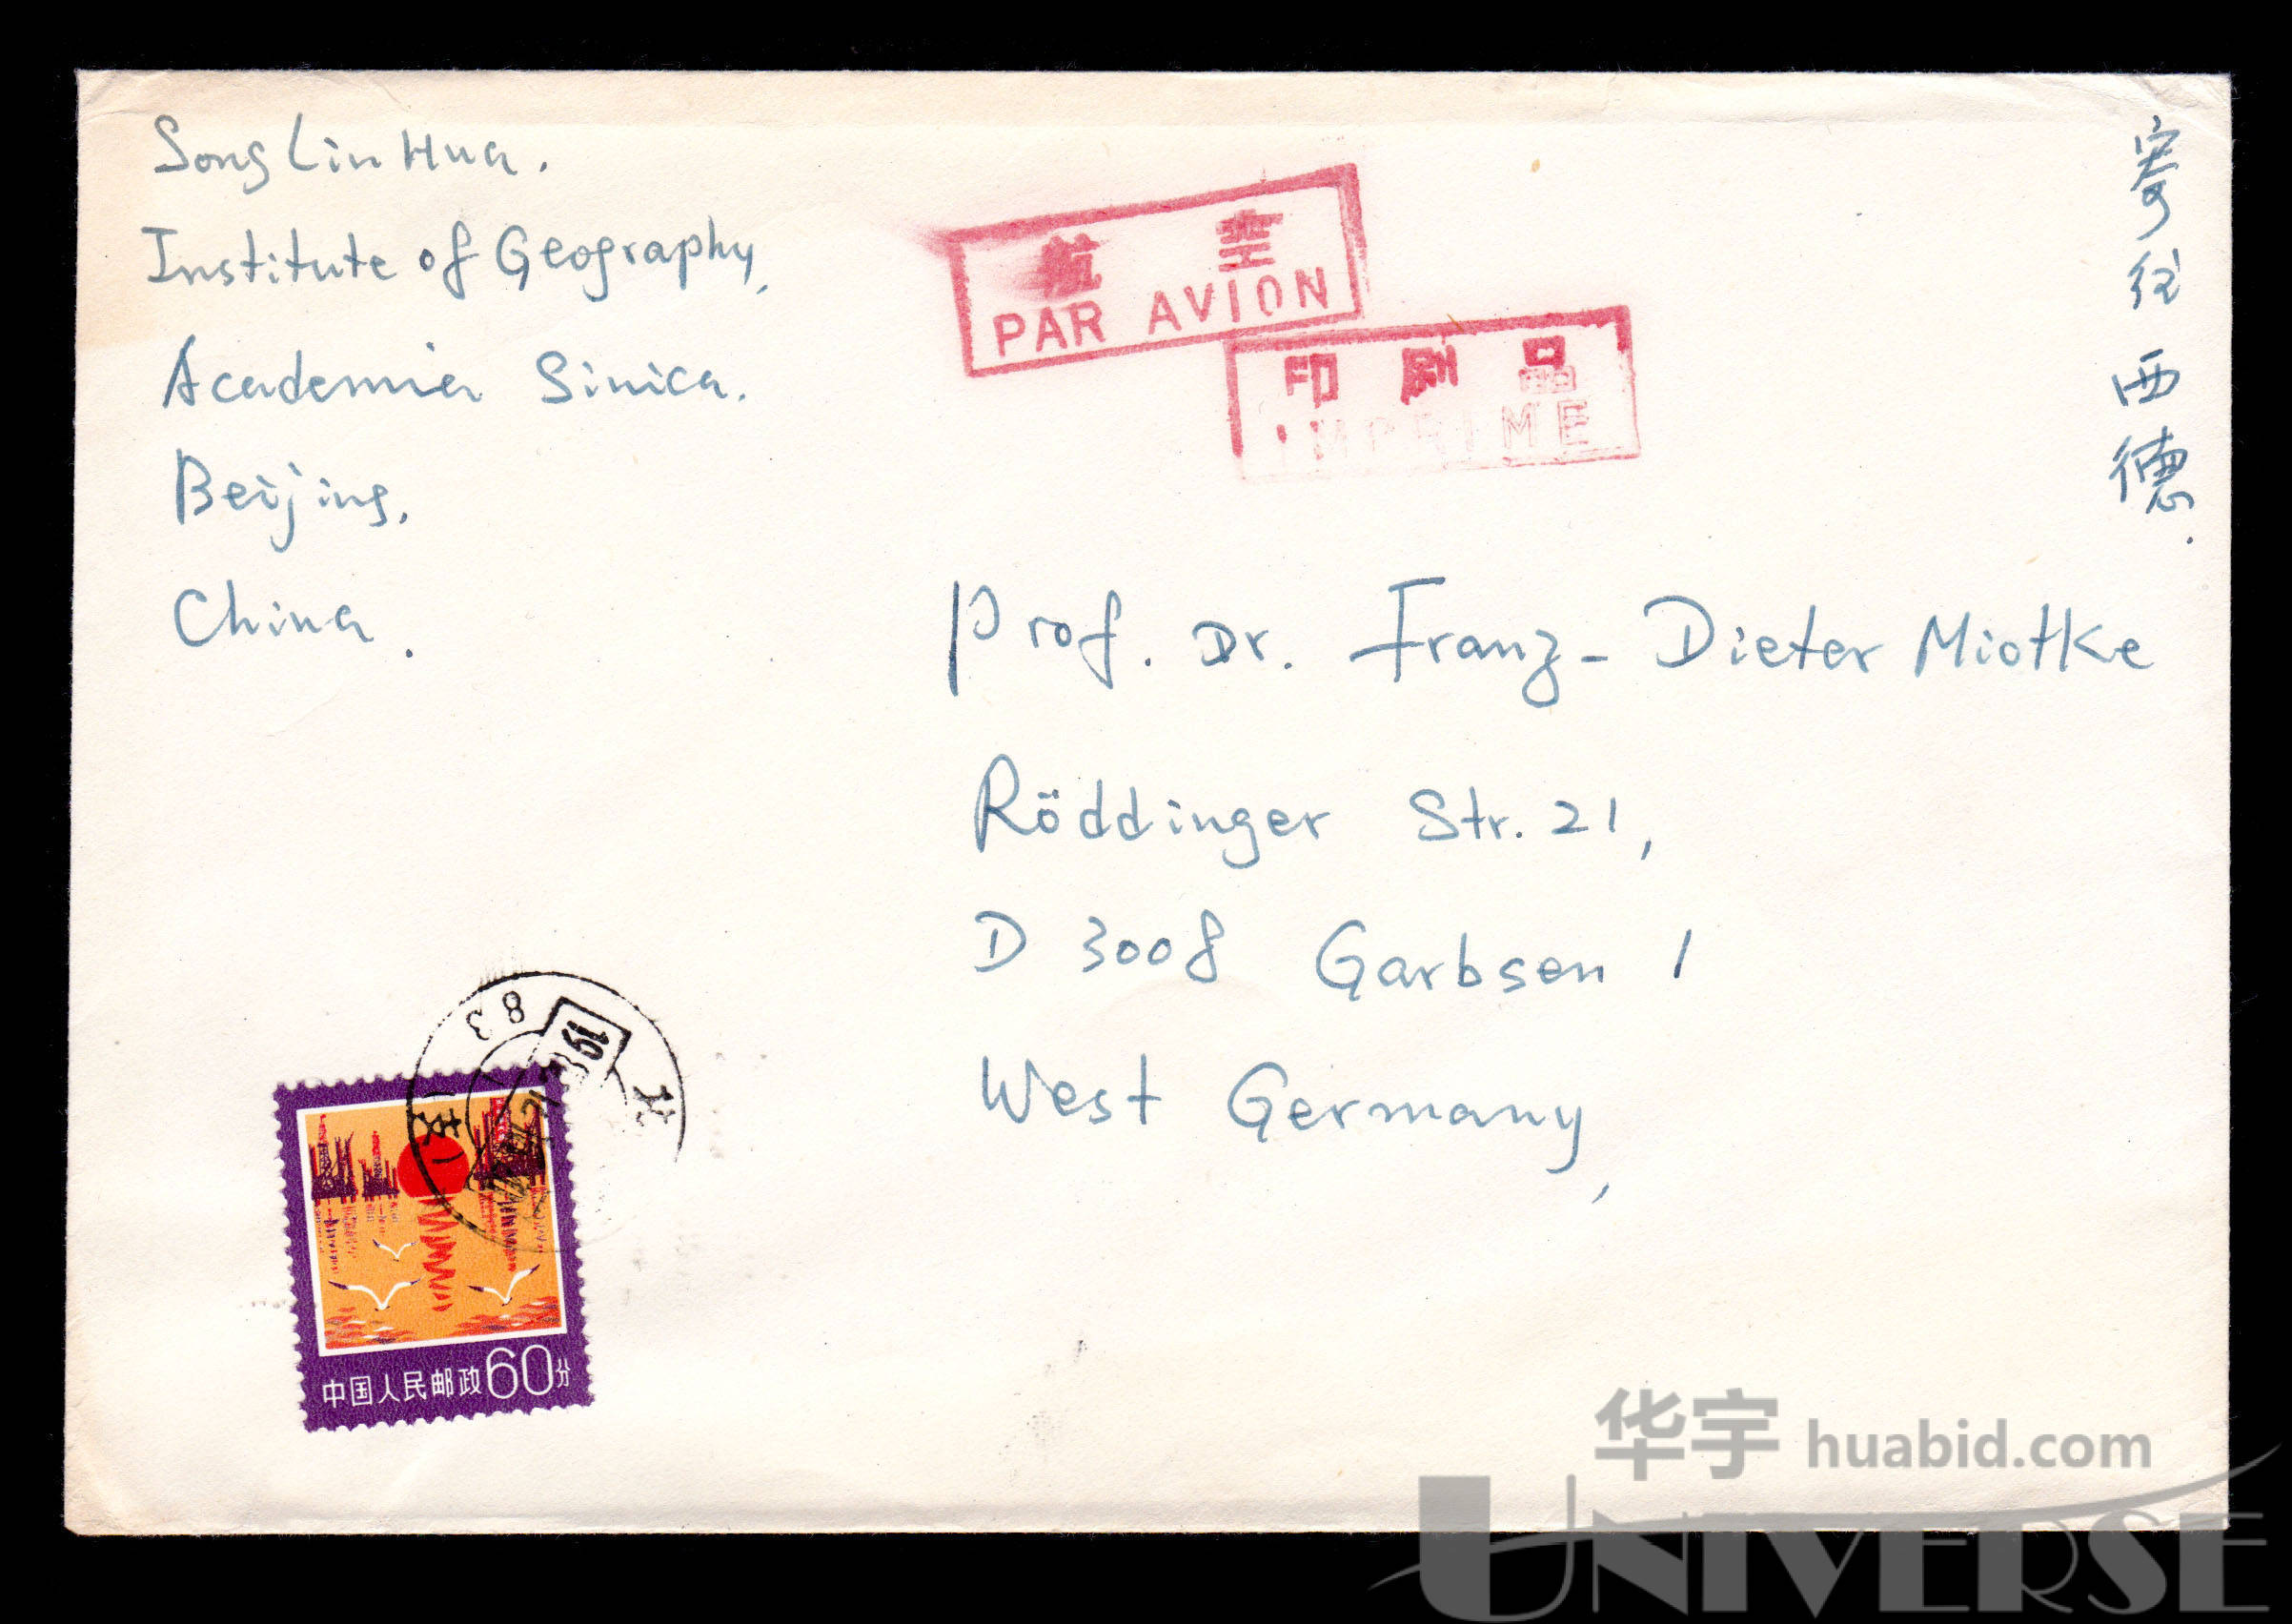 Song Lin Hua.
Institute of Geography,
Academia Sinica.
Beijing,
China.
航空
PAR AVION
印刷品
IMPRIME
寄往西德.
Prof. Dr. Franz-Dieter Miotke
Röddinger Str. 21,
D 3008 Garbsen 1
West Germany,
83
北
中国人民邮政60分
华宇 huabid.com
UNIVERSE